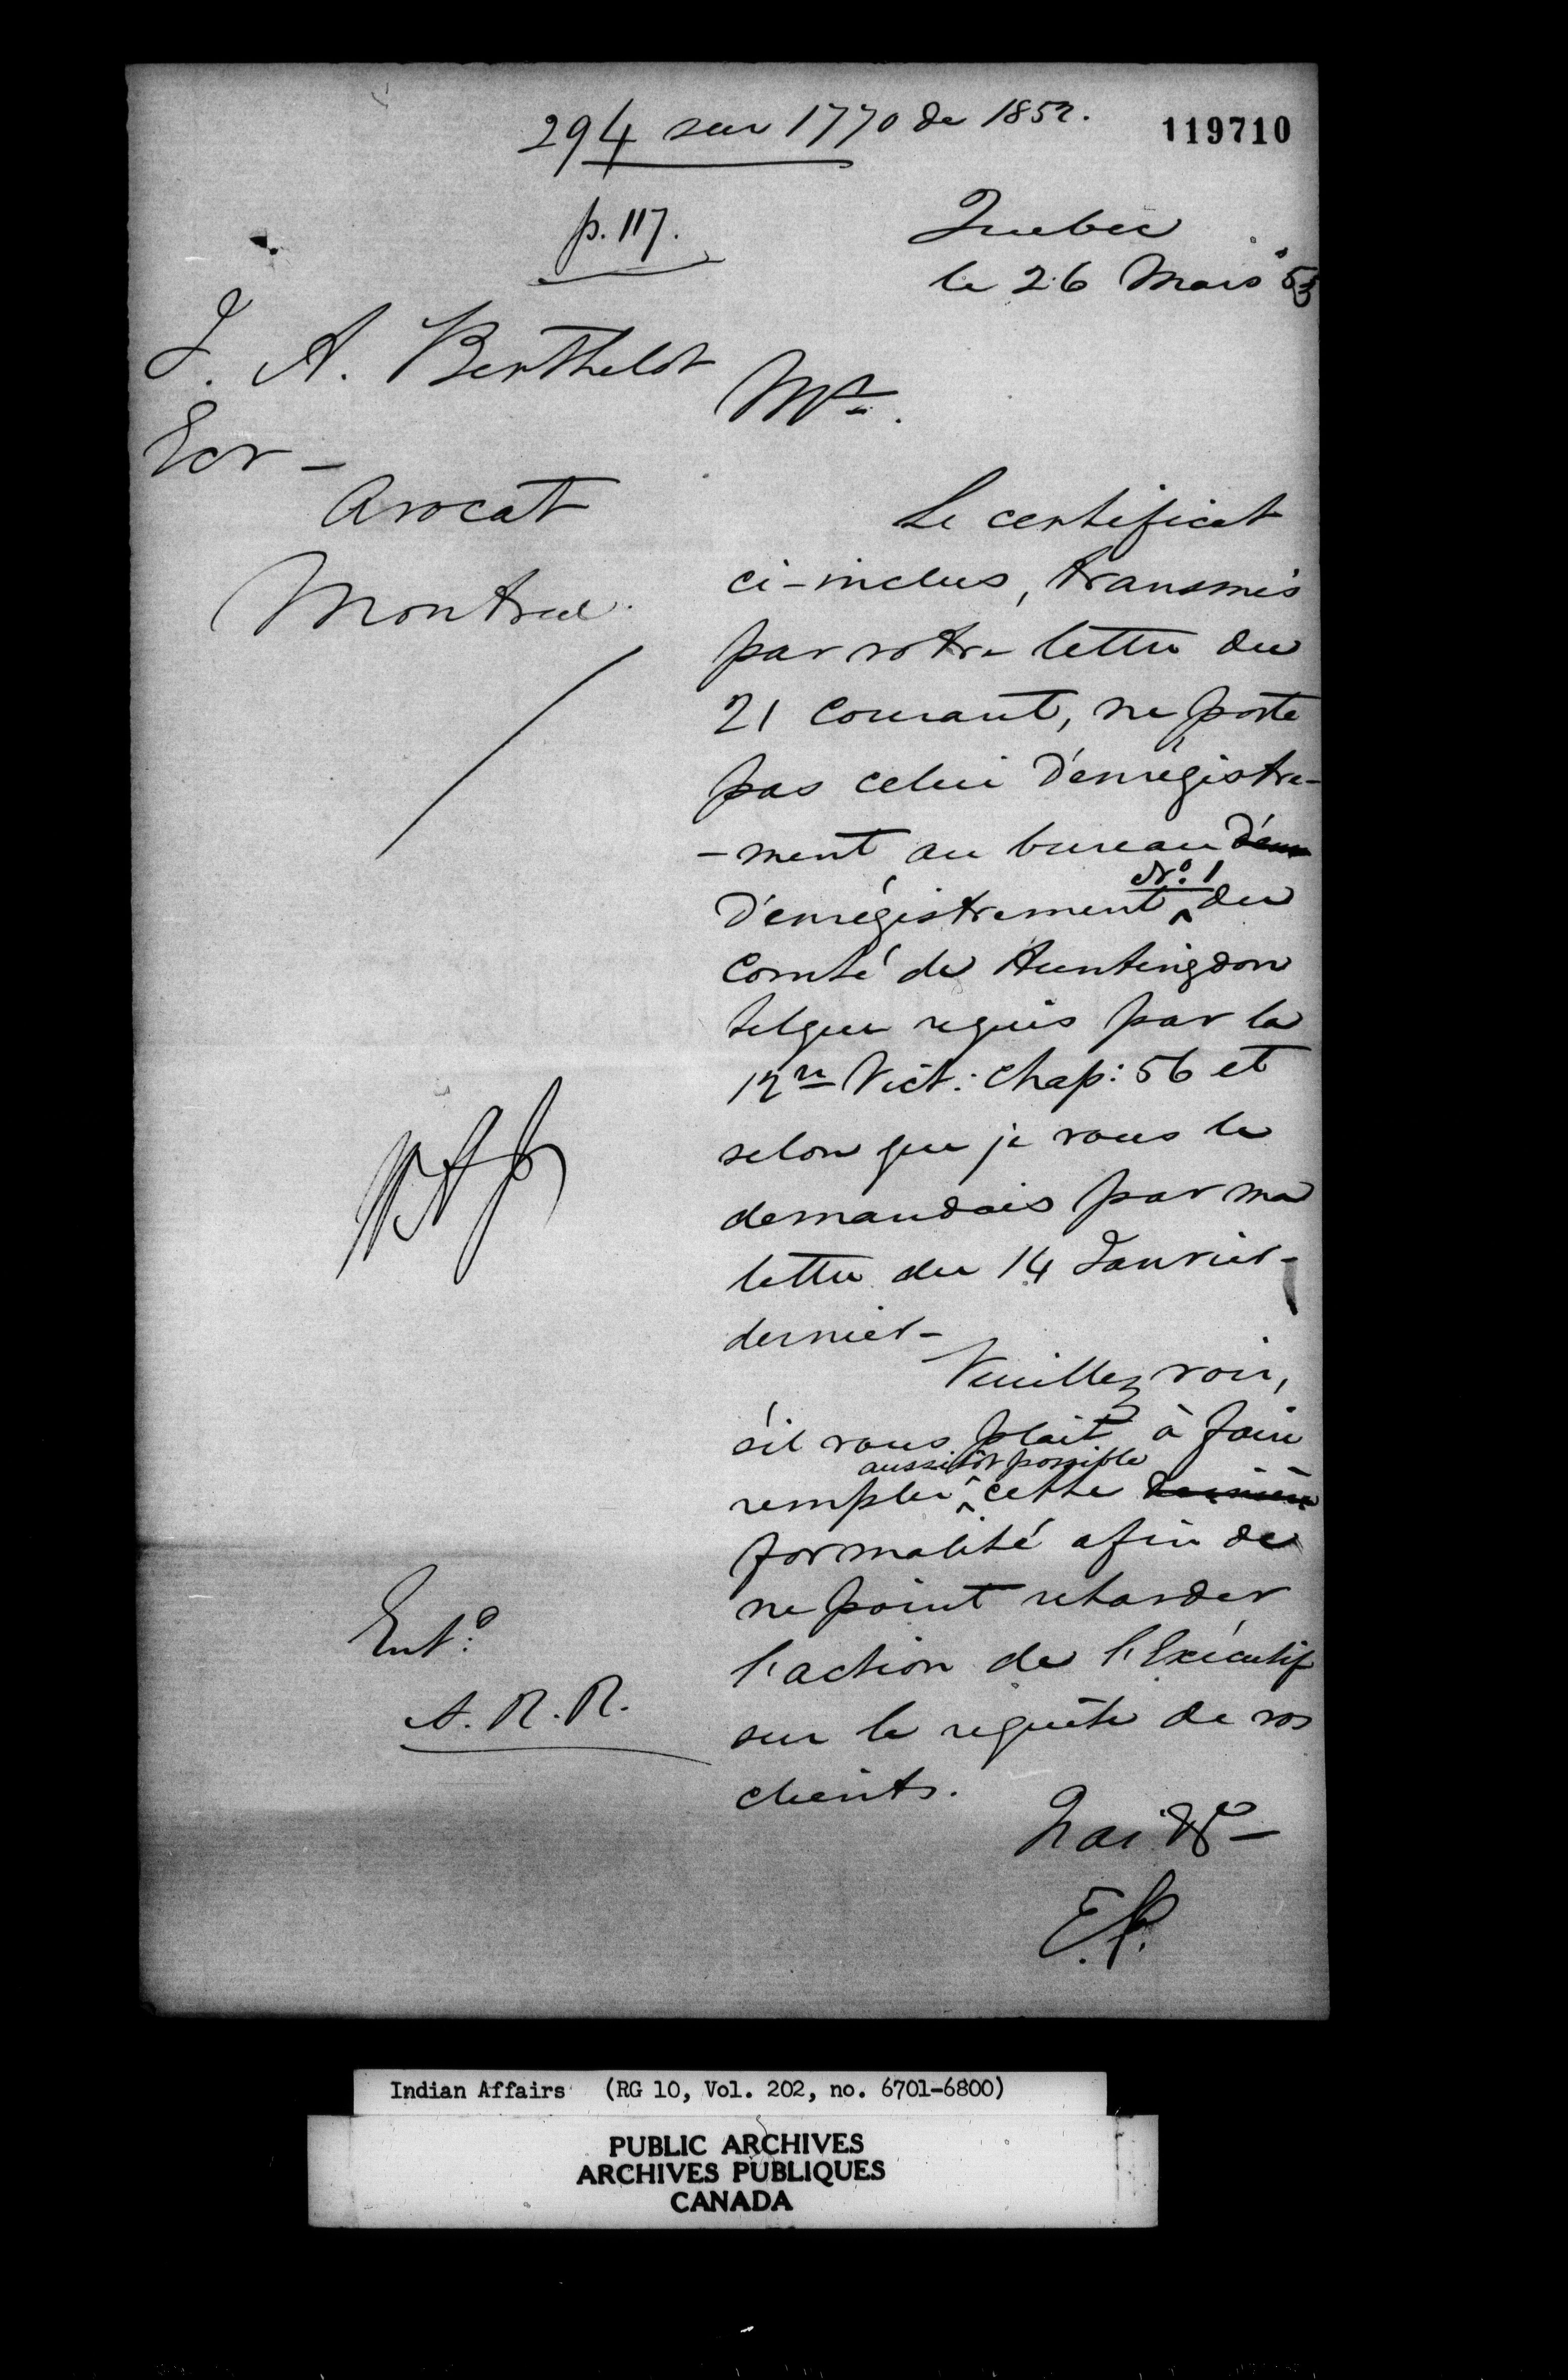 294 sur 1770 de 1852.
119710
p. 117.
Quebec
le 26 Mars 53
J. A. Berthelot
Ecr -
Avocat
Montreal.
Mr.
Le certificat
ci-inclus, transmis
par votre lettre du
21 Courant, ne porte
pas celui d'enrégistre-
-ment au bureau
d'enrégistrement No. 1 du
Comté de Huntingdon
telque requis par la
12re Vict: Chap: 56 et
selon que je vous le
demandais par ma
lettre du 14 Janvier-
dernier-
Veuillez voir,
s'il vous plait à faire
remplir aussitôt possible cette dernière
formalité afin de
ne point retarder
l'action de l'Exécutif
sur le requête de vos
clients.
J'ai &c -
E.P.
Ent.
A. R. R.
Indian Affairs (RG 10, Vol. 202, no. 6701-6800)
PUBLIC ARCHIVES
ARCHIVES PUBLIQUES
CANADA